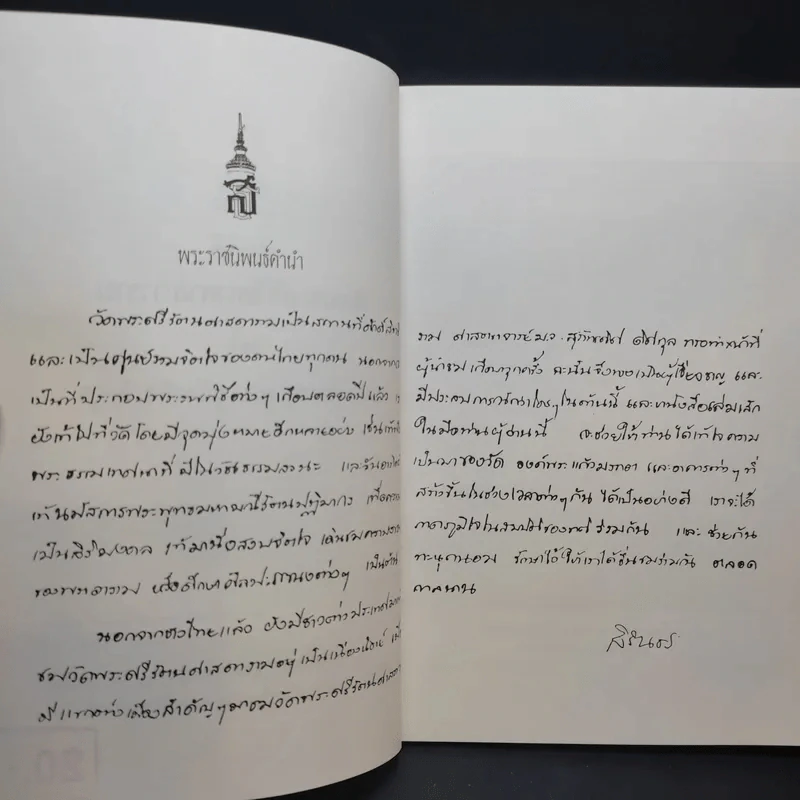 พระราชนิพนธ์คำนำ
วัดพระศรีรัตนศาสดารามเป็นสถานที่ศักดิ์สิทธิ์
และเป็นศูนย์รวมจิตใจของคนไทยทุกคน นอกจาก
เป็นที่ประกอบพระราชพิธีต่างๆ เกือบตลอดปีแล้ว
ยังเข้าไปที่วัดโดยมีจุดมุ่งหมายอีกหลายอย่าง เช่น
พระธรรมเทศนาที่มีในวันธรรมสวนะ และวันอาทิตย์
นมัสการพระพุทธมหามณีรัตนปฏิมากร เพื่อความ
เป็นสิริมงคล เข้ามานั่งสงบจิตใจ เดินชมความงาม
ของพระอาราม หรือศึกษาศิลปะแขนงต่างๆ เป็นต้น
นอกจากชาวไทยแล้ว ยังมีชาวต่างประเทศมา
ชมวัดพระศรีรัตนศาสดารามอยู่เป็นเนืองนิตย์ เมื่อ
มีแขกอย่างเมืองสำคัญๆ มาชมวัดพระศรีรัตนศาสดา
ราม ศาสตราจารย์ ม.จ. สุภัทรดิศ ดิศกุล ทรงทำหน้าที่
ผู้นำชมเกือบทุกครั้ง ฉะนั้นจึงทรงเป็นผู้เชี่ยวชาญ และ
มีประสบการณ์มากในด้านนี้ และหนังสือเล่มเล็ก
ในมือท่านผู้อ่านนี้ จะช่วยให้ท่านได้เข้าใจความ
เป็นมาของวัด องค์พระแก้วมรกต และอาคารต่างๆ ที่
สร้างขึ้นในช่วงเวลาต่างๆ กัน ได้เป็นอย่างดี เราจะได้
ภาคภูมิใจในสมบัติของชาติร่วมกัน และช่วยกัน
ทะนุถนอม รักษาไว้ให้เราได้ชื่นชมร่วมกัน ตลอด
กาลนาน
สิรินธร